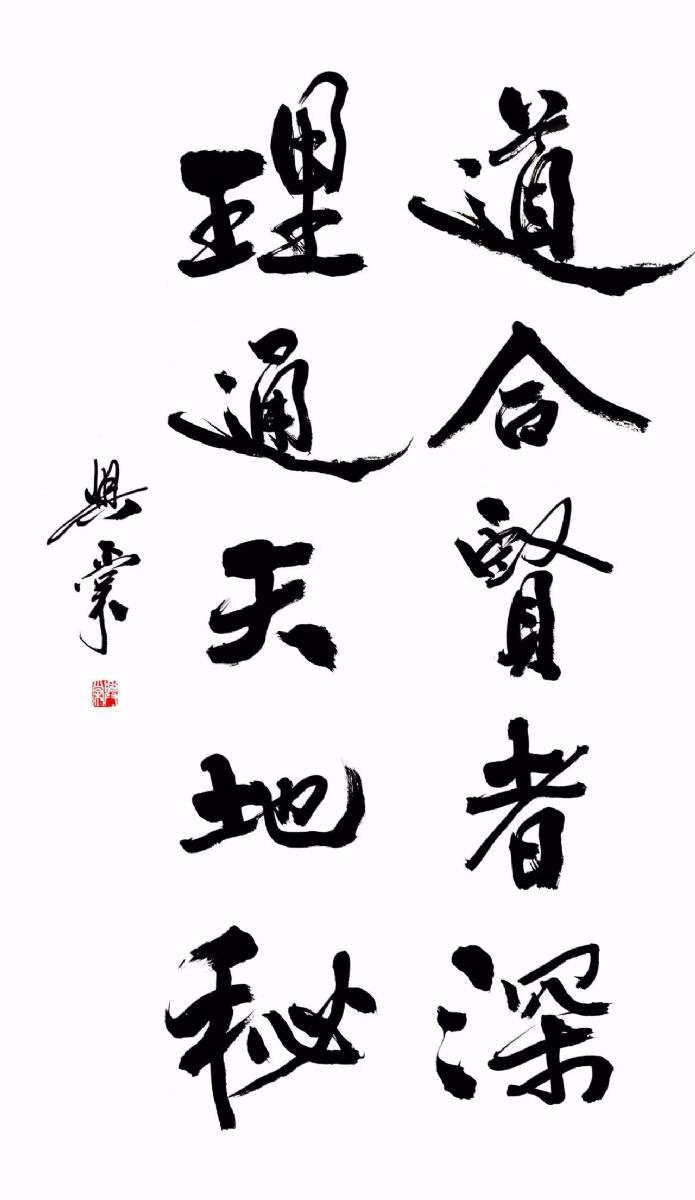 道合賢者深
理通天地秘
興棠